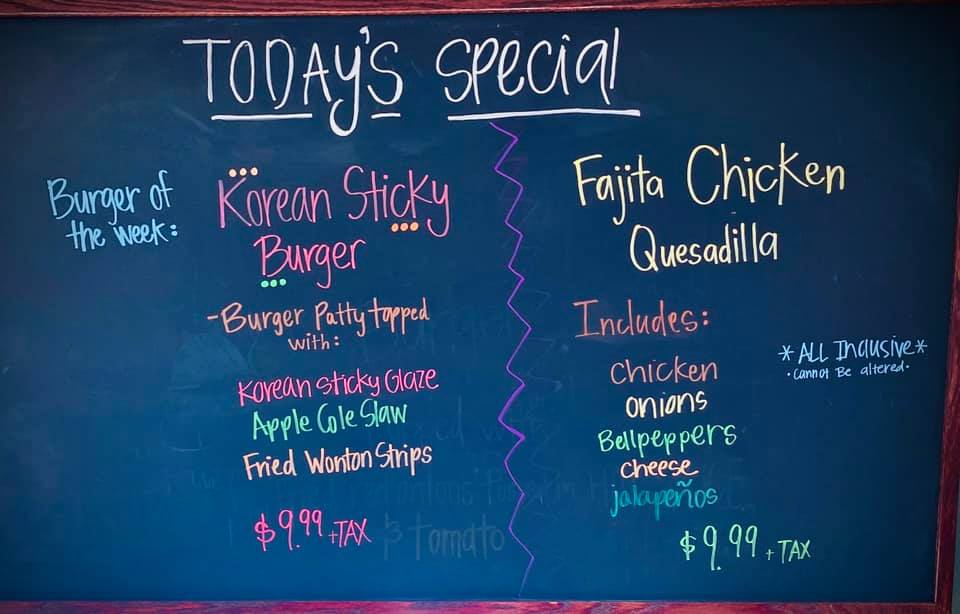 TODAY'S SPECIAL
Burger of
the week:
Korean Sticky
Burger
-Burger Patty topped
with:
Korean Sticky Glaze
Apple Cole Slaw
Fried Wonton Strips
$9.99 +TAX
& Tomato
Fajita Chicken
Quesadilla
Includes:
Chicken
onions
Bellpeppers
cheese
jalapeños
$9.99 + TAX
*ALL Inclusive*
·Cannot Be altered·